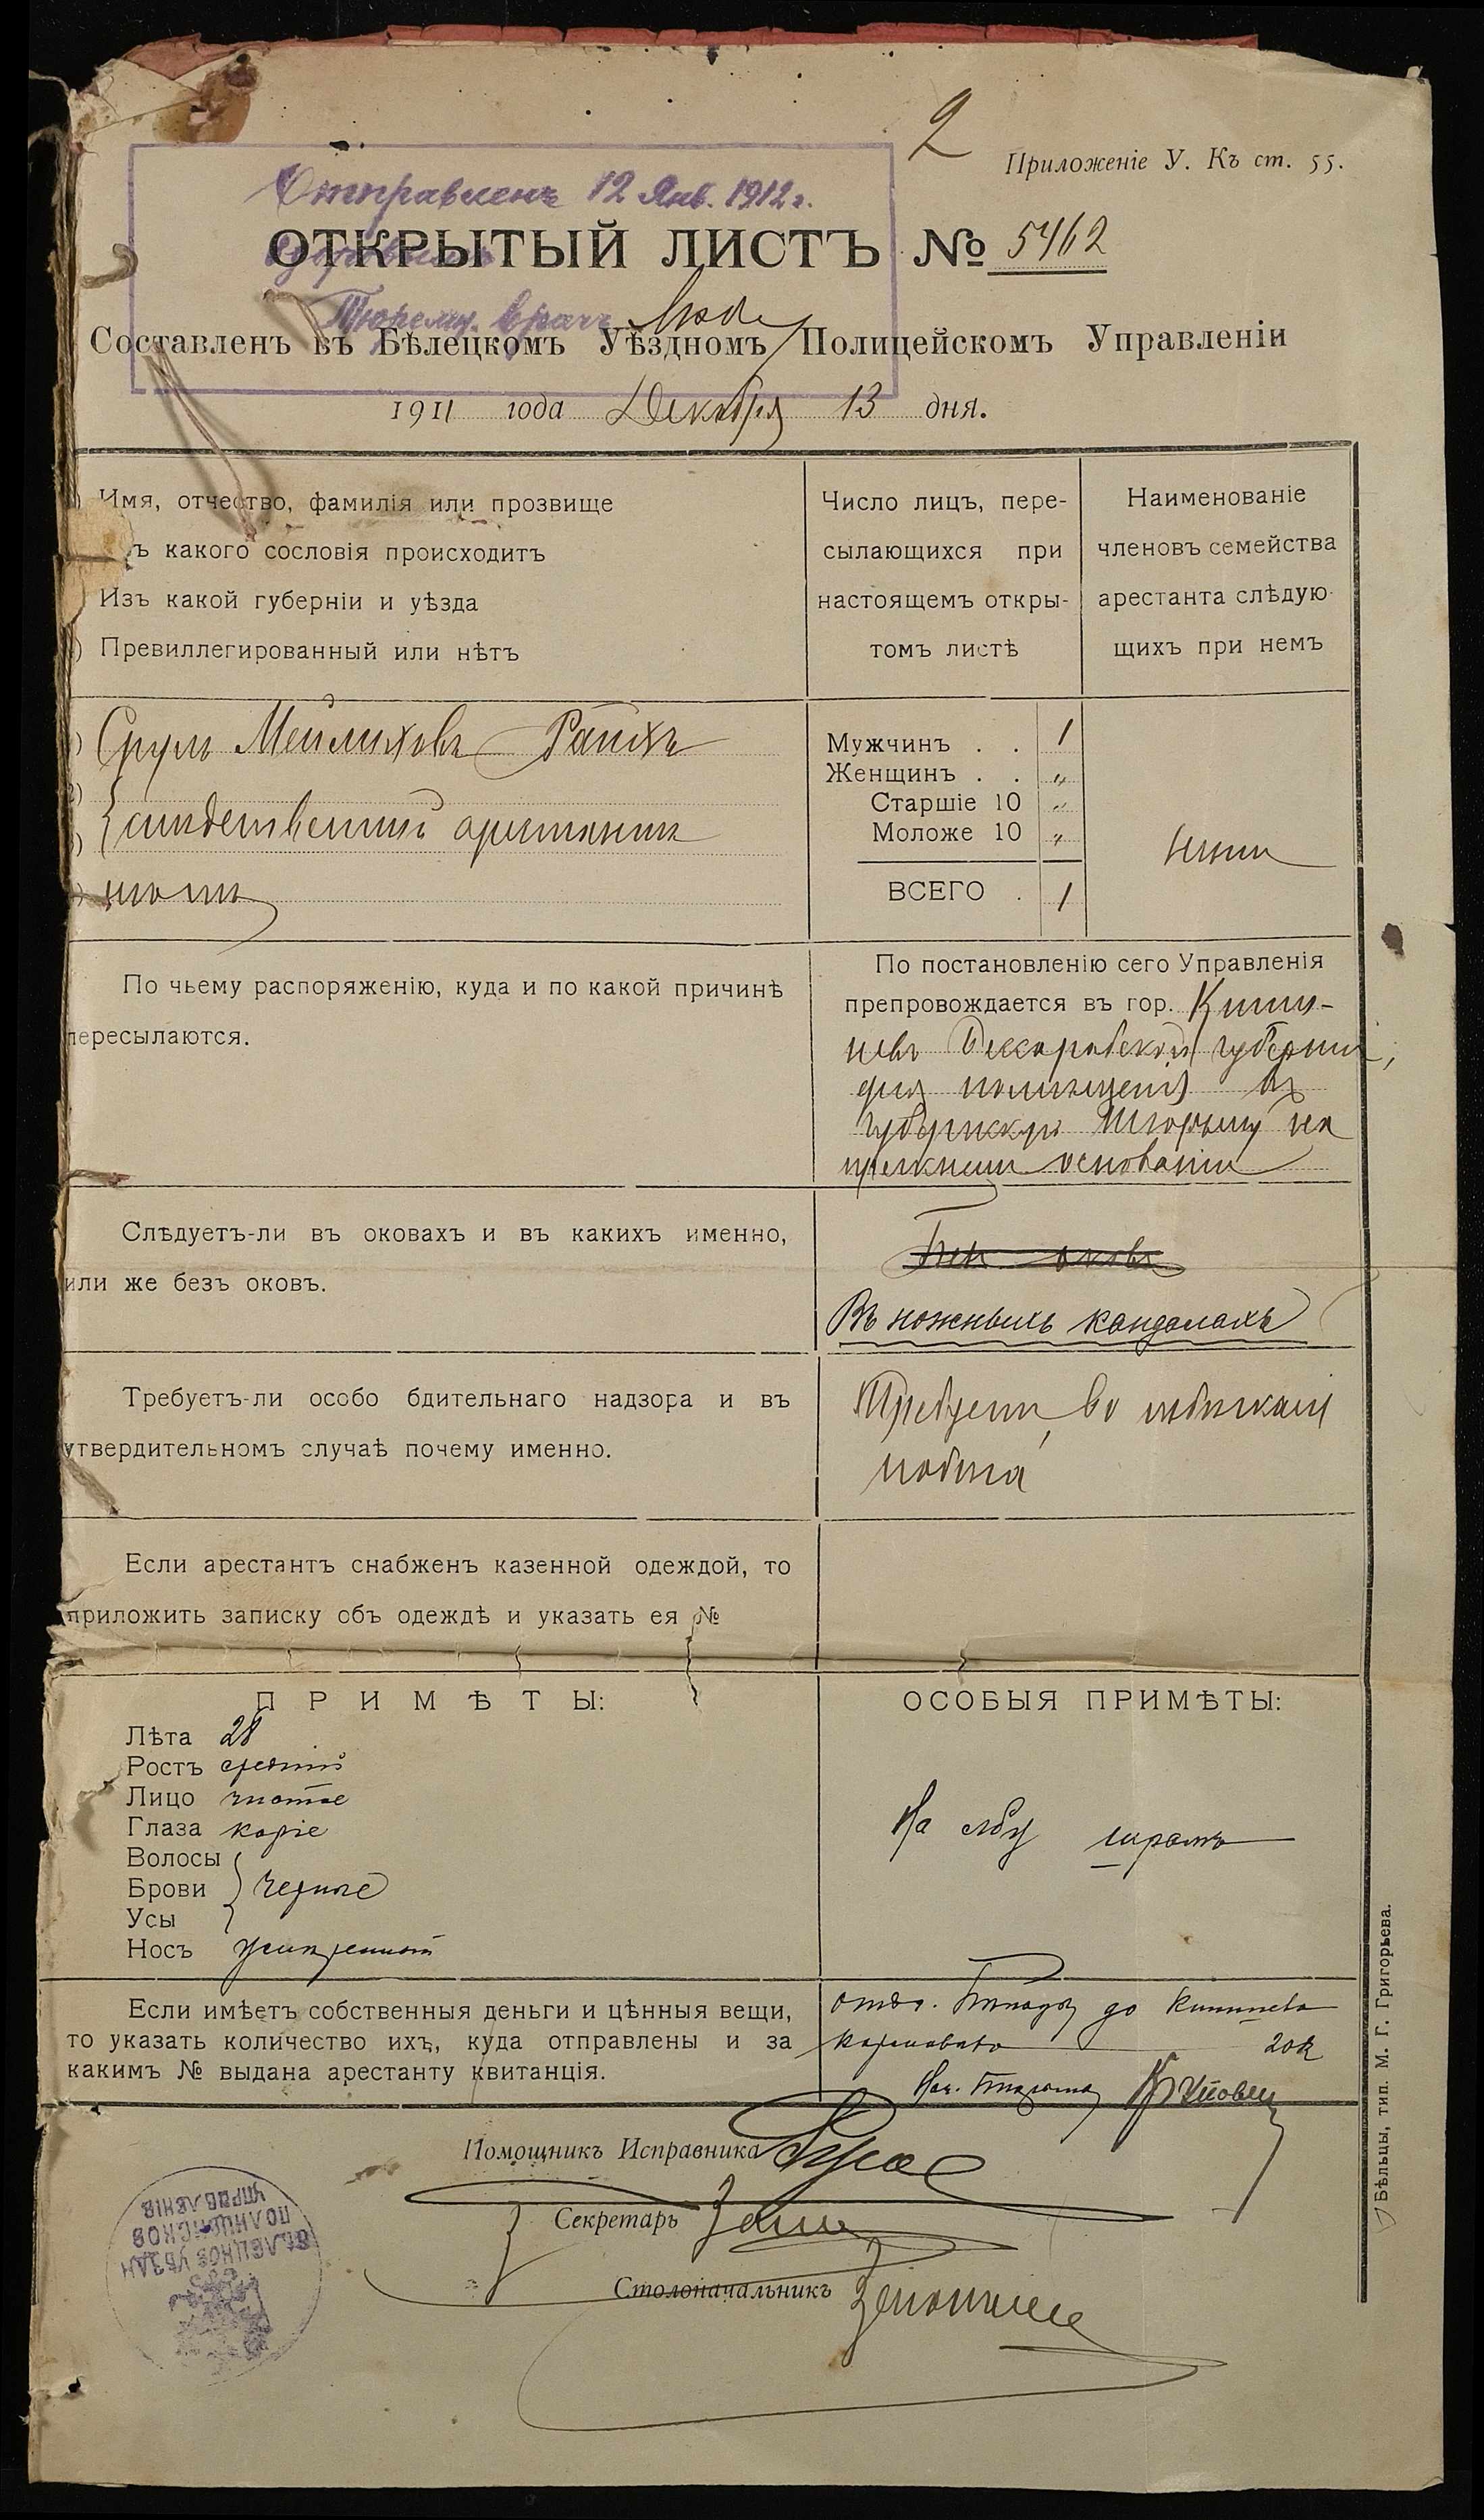 2
Приложеніе У. Къ ст. 55.
Отправленъ 12 Янв. 1912 г.
ОТКРЫТЫЙ ЛИСТЪ № 5462
Тюремн. врачъ
Составленъ въ Бѣлецкомъ Уѣздномъ Полицейскомъ Управленіи
1911 года Декабря 13 дня.
Имя, отчество, фамилія или прозвище
ъ какого сословія происходитъ
Изъ какой губерніи и уѣзда
Превиллегированный или нѣтъ
Число лицъ, пере-
сылающихся при
настоящемъ откры-
томъ листѣ
Наименованіе
членовъ семейства
арестанта слѣдую-
щихъ при немъ
Сруль Мейлиховъ Райхъ
слѣдственный арестантъ
нѣтъ
Мужчинъ . . 1
Женщинъ . . "
Старшіе 10 "
Моложе 10 "
ВСЕГО . 1
нѣтъ
По чьему распоряженію, куда и по какой причинѣ
пересылаются.
По постановленію сего Управленія
препровождается въ гор. Киши-
невъ Бессарабской губерніи,
для помѣщенія въ
Губернскую тюрьму на
прежнемъ основаніи
Слѣдуетъ-ли въ оковахъ и въ какихъ именно,
или же безъ оковъ.
Безъ оковъ
Въ ножныхъ кандалахъ
Требуетъ-ли особо бдительнаго надзора и въ
утвердительномъ случаѣ почему именно.
Требуетъ, во избѣжаніи
побѣга
Если арестантъ снабженъ казенной одеждой, то
приложить записку объ одеждѣ и указать ея №
ПРИМѢТЫ:
Лѣта 28
Ростъ средній
Лицо чистое
Глаза каріе
Волосы
Брови черные
Усы
Носъ умѣренный
ОСОБЫЯ ПРИМѢТЫ:
На лбу шрамъ
Если имѣетъ собственныя деньги и цѣнныя вещи,
то указать количество ихъ, куда отправлены и за
какимъ № выдана арестанту квитанція.
до Кишинева
кормовыхъ 20к
Нач.
Помощникъ Исправника
Секретарь
Столоначальникъ
БѢЛЕЦКОЕ УѢЗДН
ПОЛИЦЕЙСКОЕ
УПРАВЛЕНІЕ
Бѣльцы, тип. М. Г. Григорьева.